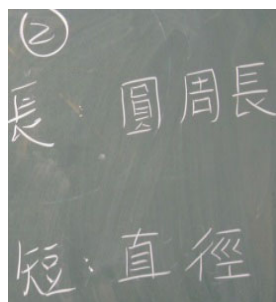 ②
長 圓周長
短:直徑